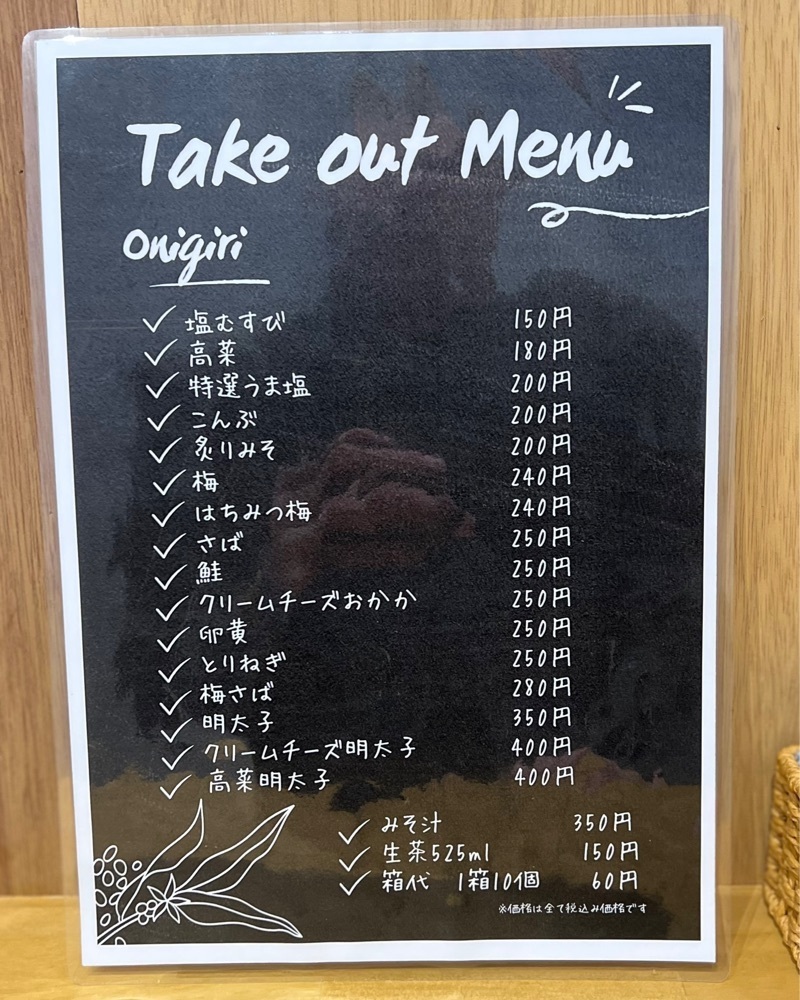 Take out Menu
Onigiri
塩むすび 150円
高菜 180円
特選うま塩 200円
こんぶ 200円
炙りみそ 200円
梅 240円
はちみつ梅 240円
さば 250円
鮭 250円
クリームチーズおかか 250円
卵黄 250円
とりねぎ 250円
梅さば 280円
明太子 350円
クリームチーズ明太子 400円
高菜明太子 400円
みそ汁 350円
生茶525ml 150円
箱代 1箱10個 60円
※価格は全て税込み価格です